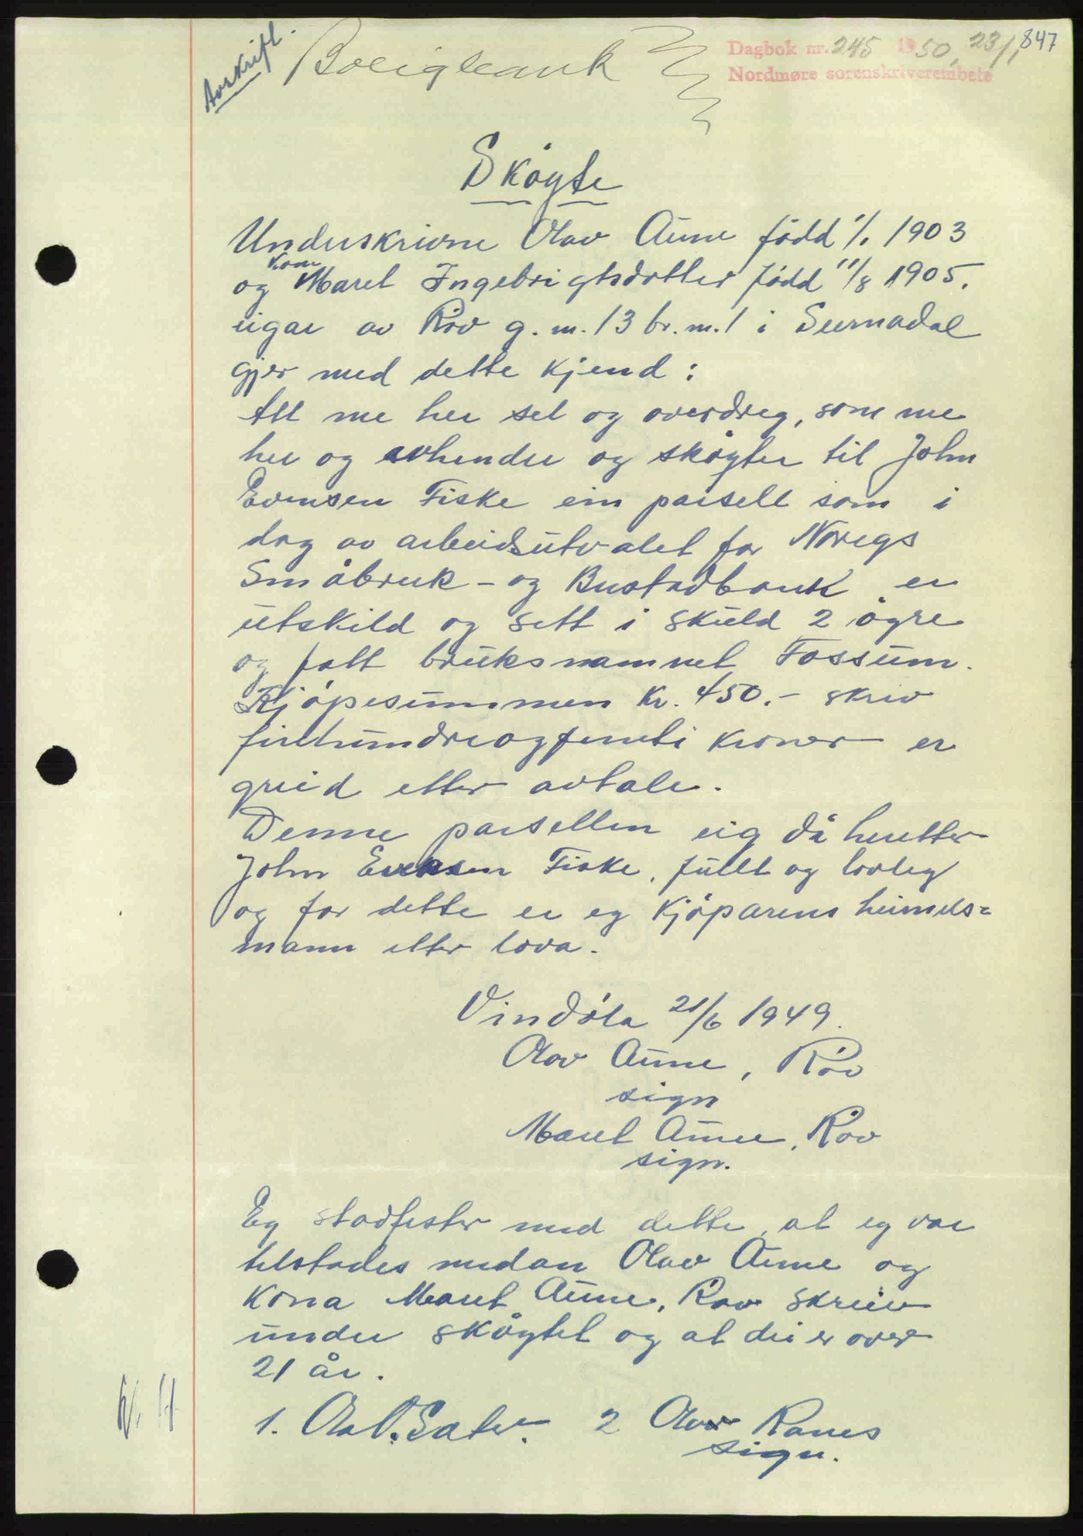 Avskrift.
Boligbank
Dagbok nr. 245 1950, 23/1
847
Nordmøre sorenskriverembete
Skøyte
Underskrivne Olav Aune født 1/1 1903
kone
og Maret Ingebrigtsdotter født 11/8 1905.
eigar av Røv g.m. 13 br.m. 1 i Surnadal
gjer med dette kjend:
At me her sel og overdreg, som me
her og avhender og skøyter til John
Evensen Fiske ein parsell som i
dag av arbeidsutvalet for Noregs
Småbruk- og Bustadbank er
utskild og sett i skuld 2 øyre
og fått bruksnamnet Fossum.
Kjøpesummen kr. 450.- skriv
firehundreogfemti kroner er
greid etter avtale.
Denne parsellen eig då heretter
John Evensen Fiske, fullt og lovleg
og for dette er eg kjøparens heimels=
mann etter lova.
Vindøla 21/6 1949.
Olav Aune, Røv
sign
Maret Aune, Røv
sign.
Eg stadfester med dette, at eg var
tilstades medan Olav Aune og
Kona Maret Aune, Røv skreiv
under skøytet og at dei er over
21 år.
1. Ola O. Sæter. 2 Olav Ranes
sign.